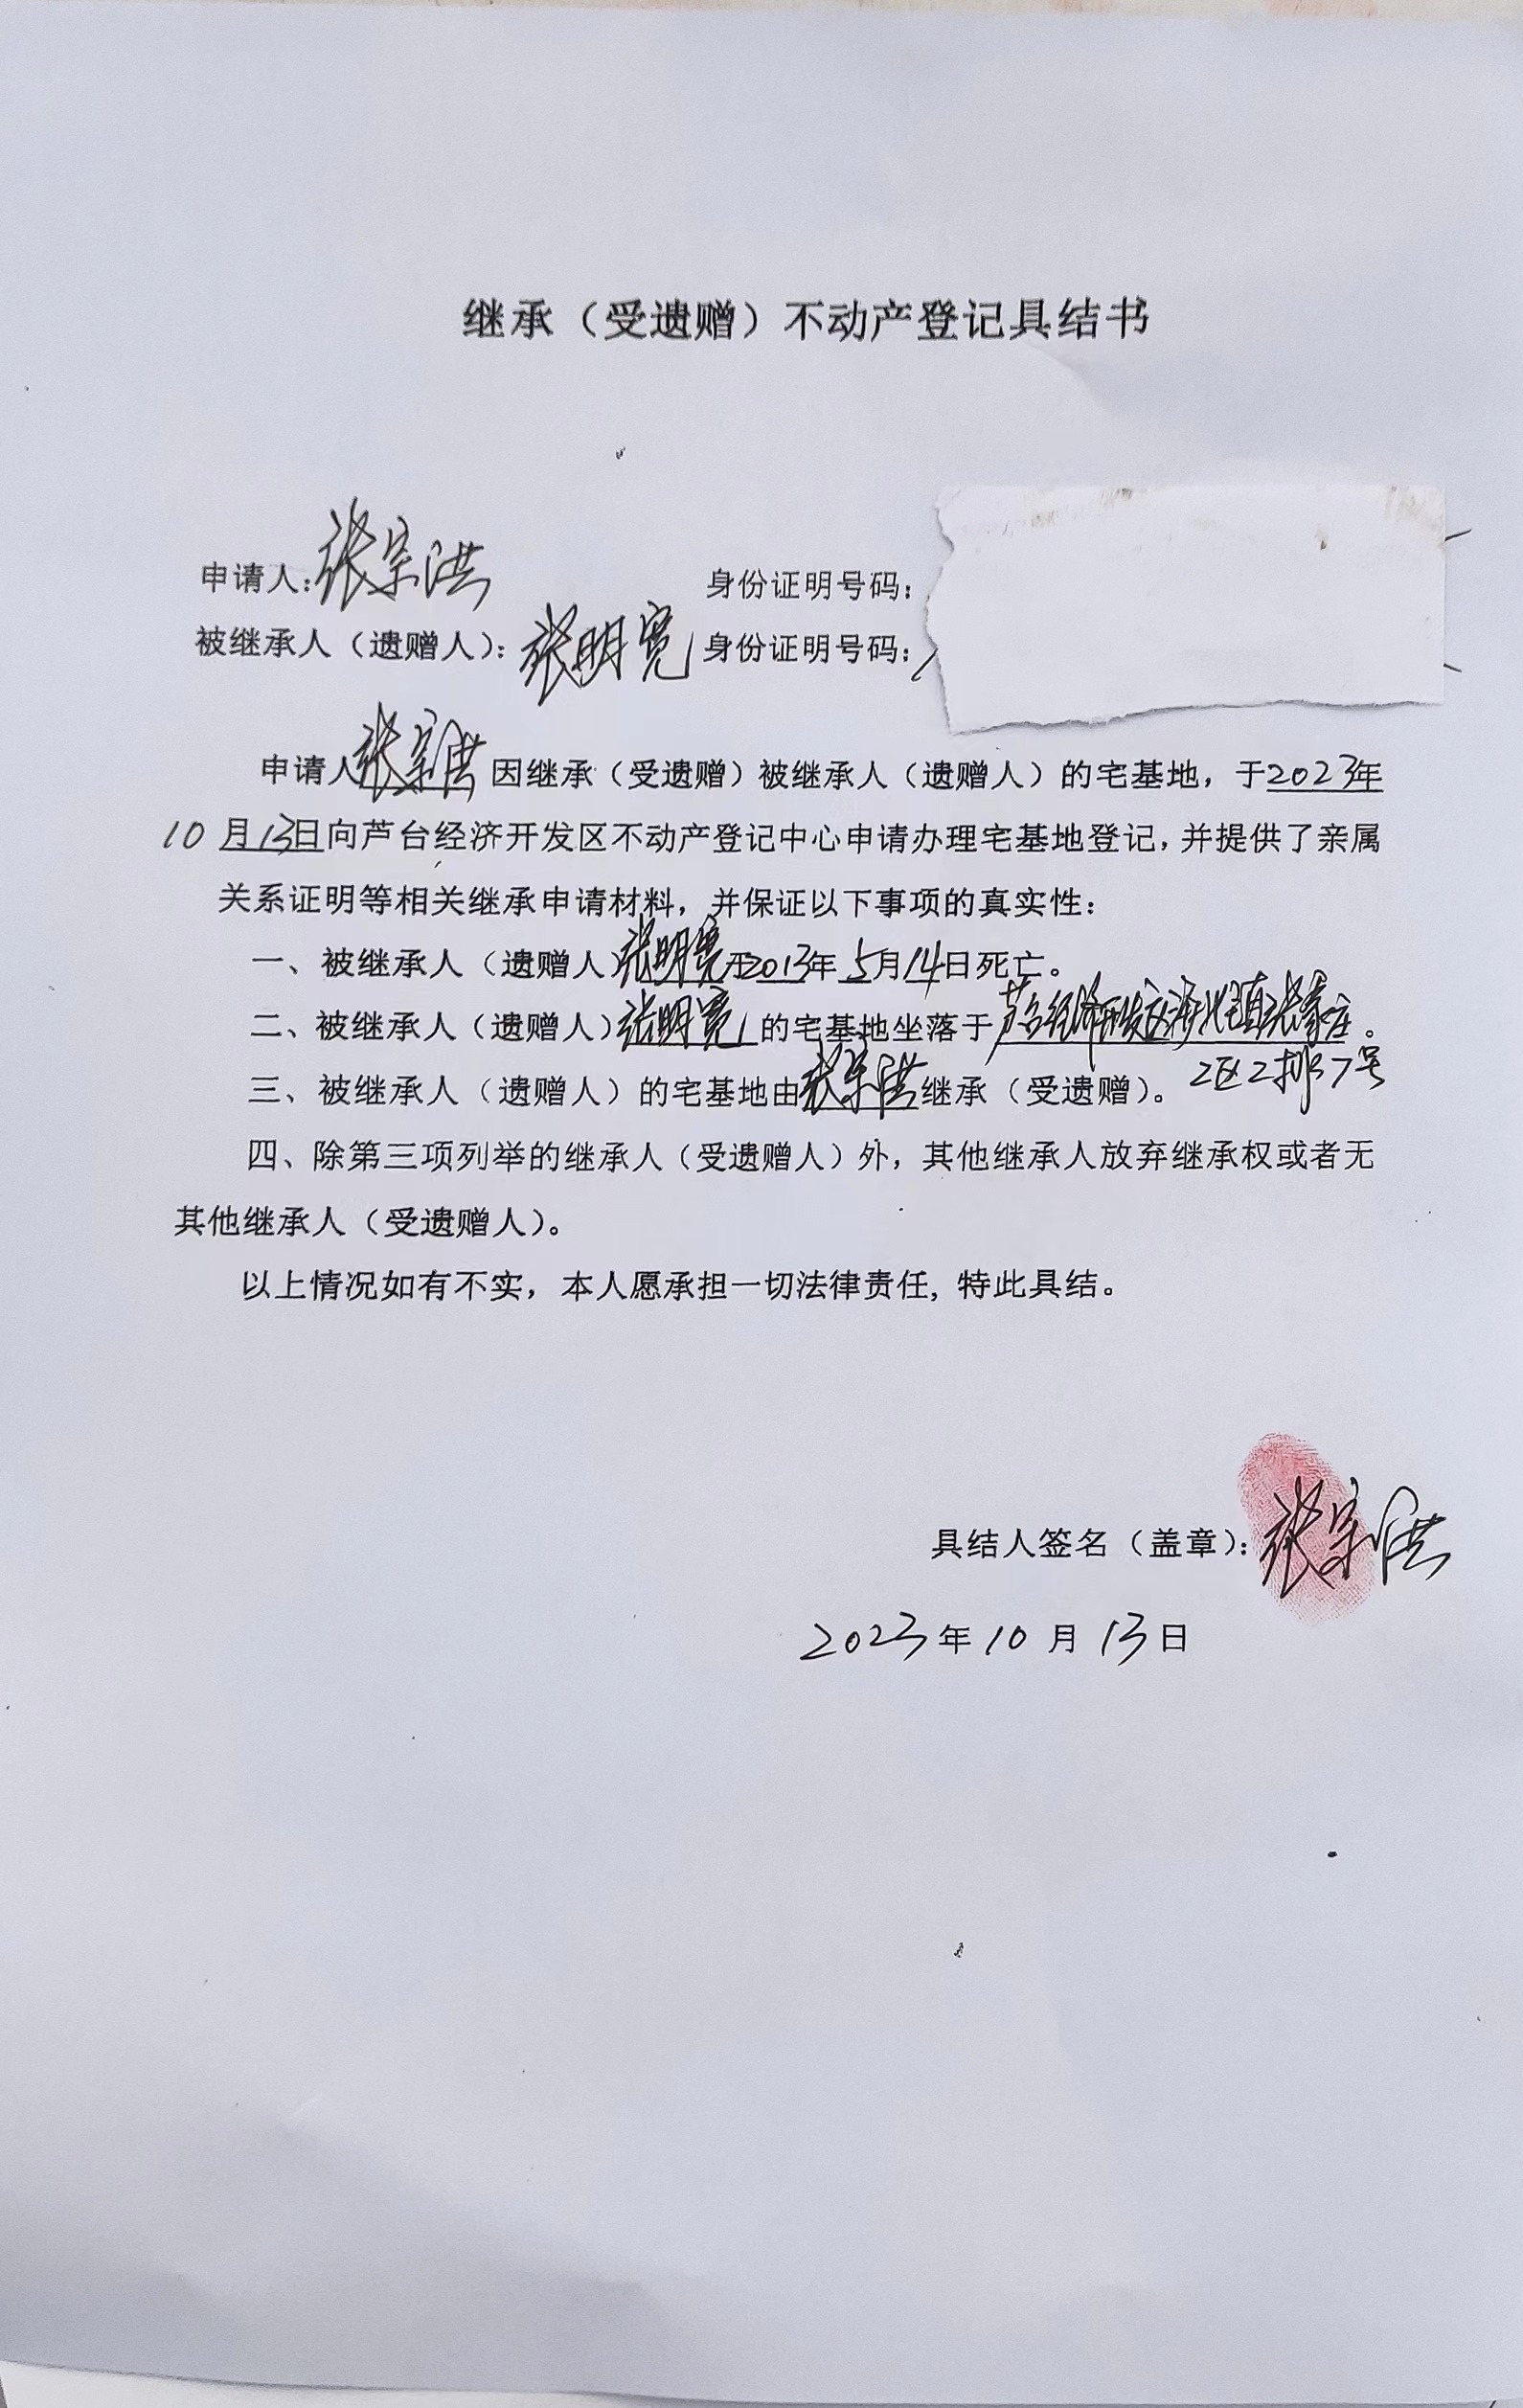 继承（受遗赠）不动产登记具结书
申请人：张宗洪 身份证明号码：
被继承人（遗赠人）：张明宽 身份证明号码：
申请人张宗洪因继承（受遗赠）被继承人（遗赠人）的宅基地，于2023年
10月13日向芦台经济开发区不动产登记中心申请办理宅基地登记，并提供了亲属
关系证明等相关继承申请材料，并保证以下事项的真实性：
一、被继承人（遗赠人）张明宽于2013年5月14日死亡。
二、被继承人（遗赠人）张明宽的宅基地坐落于芦台经济开发区海北镇张家庄。
2区2排7号
三、被继承人（遗赠人）的宅基地由张宗洪继承（受遗赠）。
四、除第三项列举的继承人（受遗赠人）外，其他继承人放弃继承权或者无
其他继承人（受遗赠人）。
以上情况如有不实，本人愿承担一切法律责任，特此具结。
具结人签名（盖章）：张宗洪
2023年10月13日